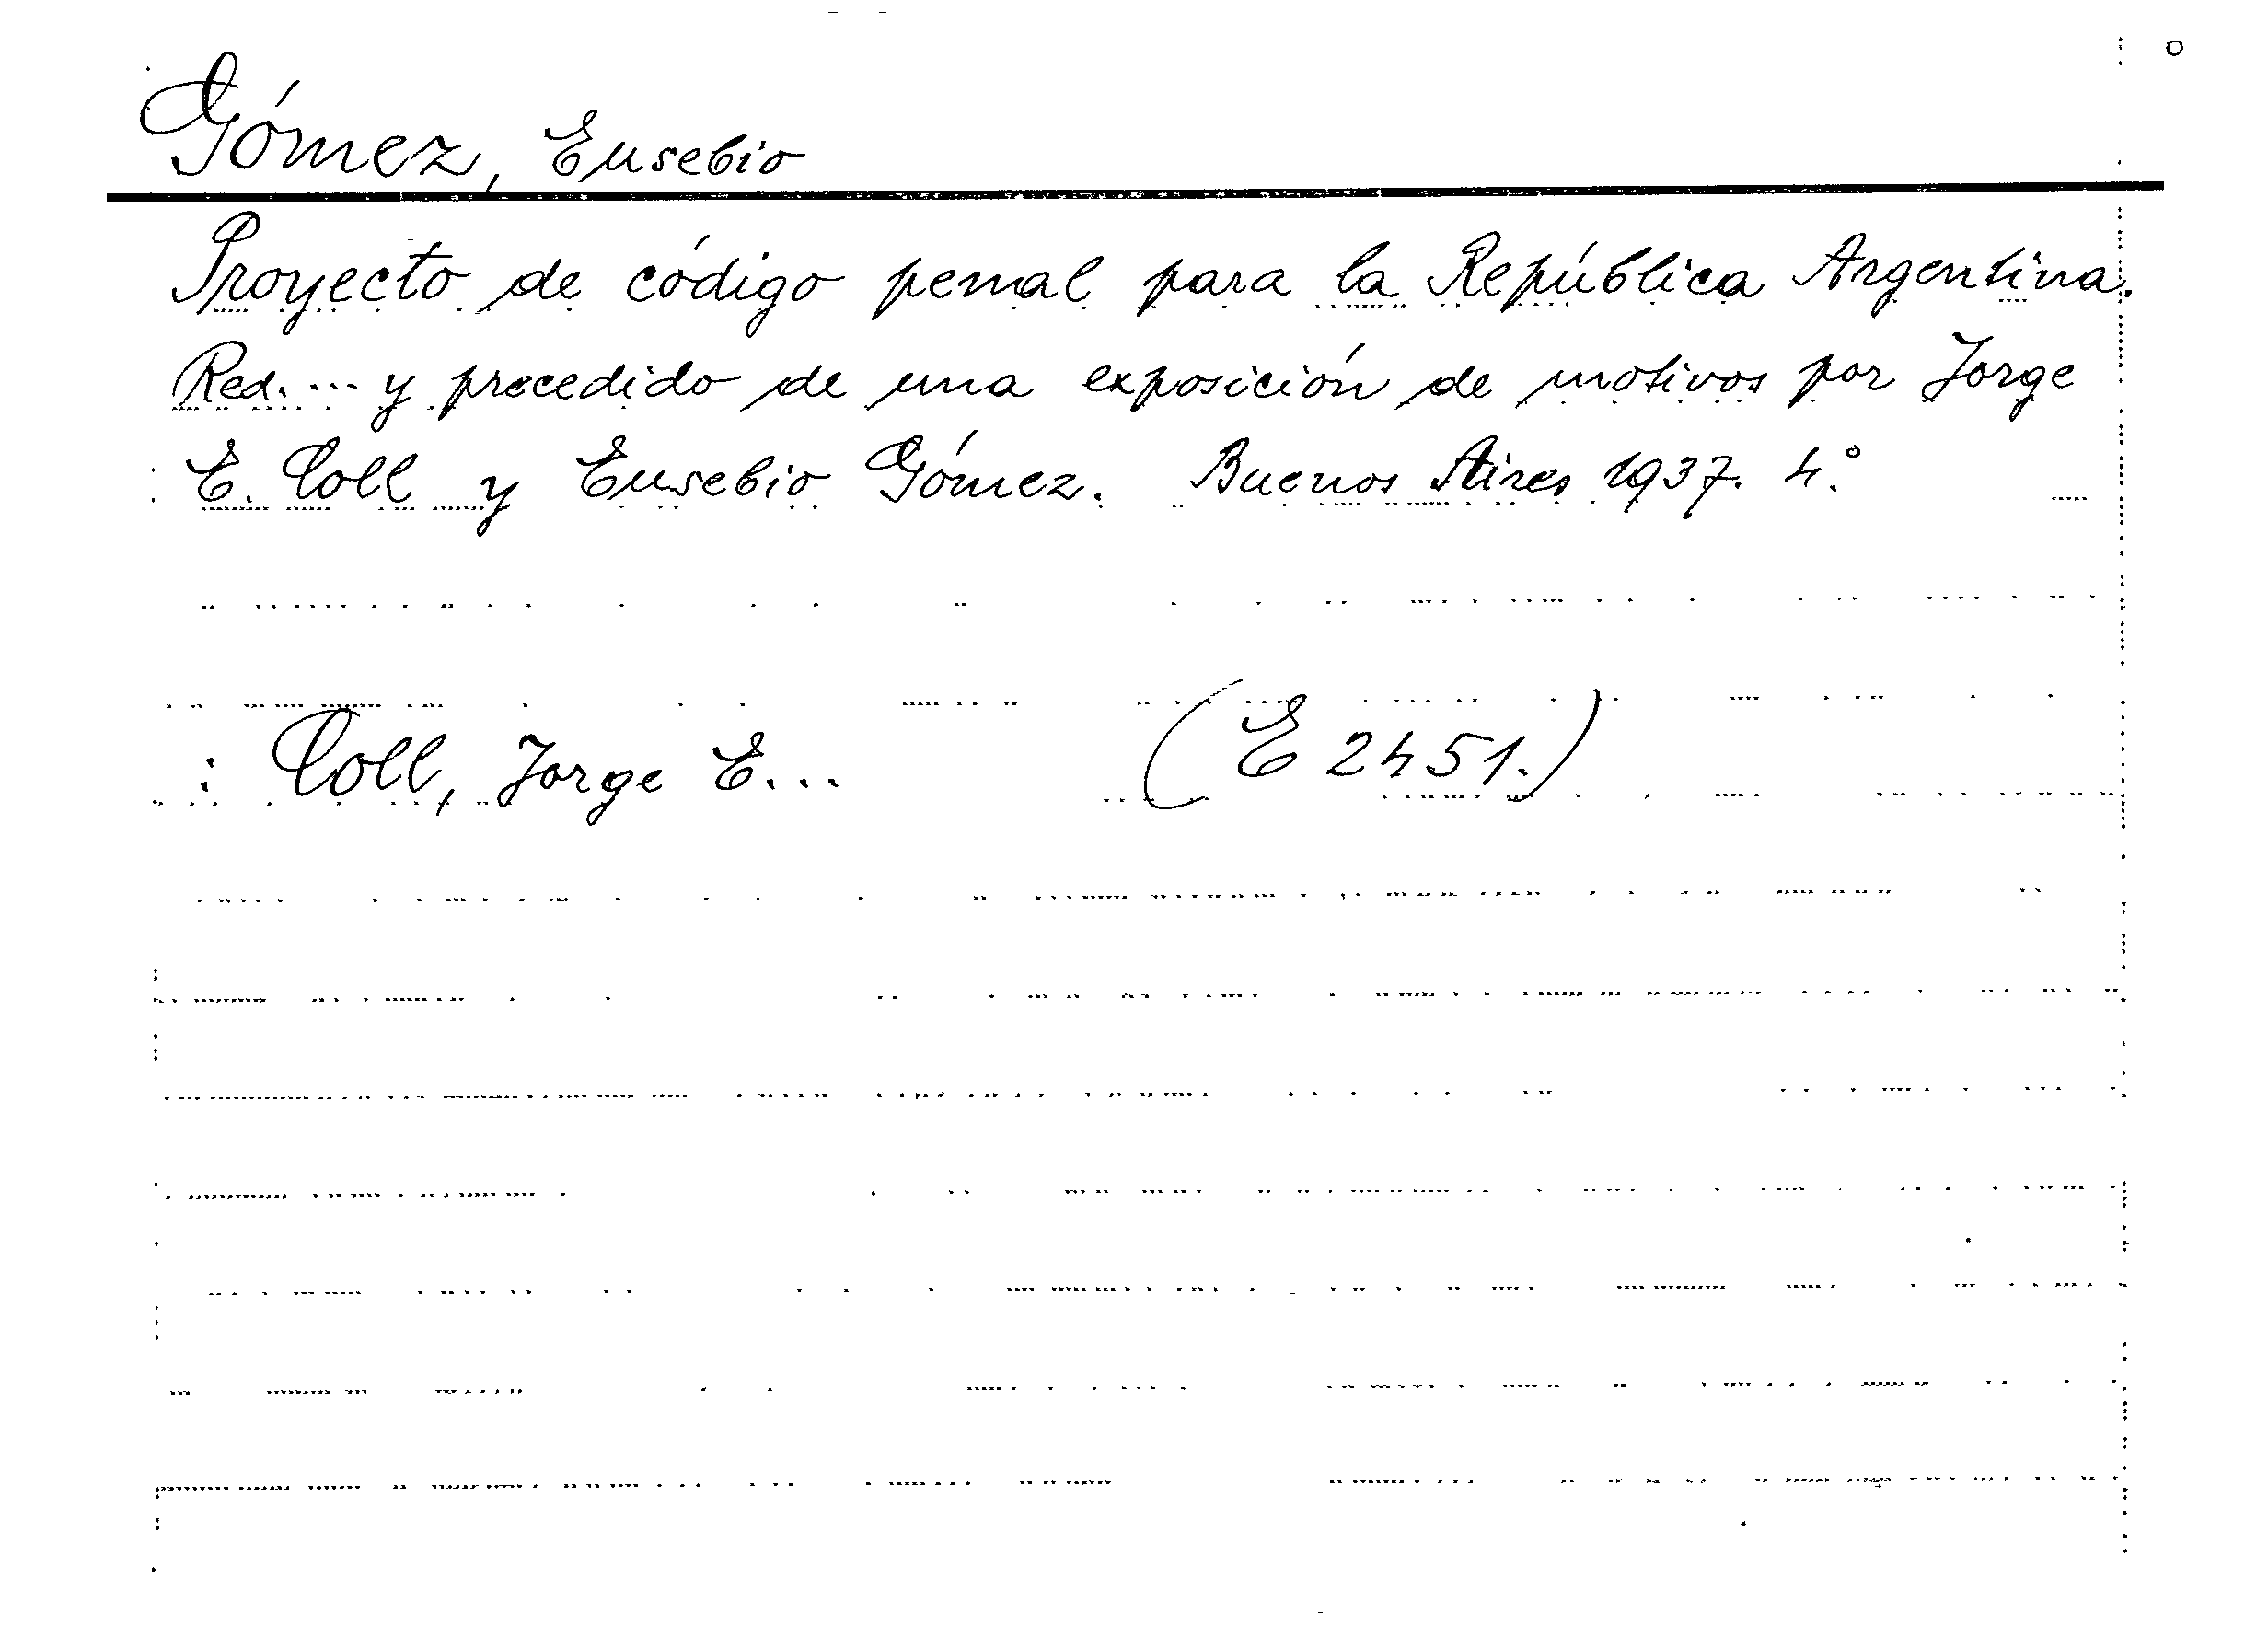 Gómez, Eusebio
Proyecto de código penal para la República Argentina.
Red. ... y precedido de una exposición de motivos por Jorge
E. Coll y Eusebio Gómez. Buenos Aires 1937. 4.°
: Coll, Jorge E... (E 2451.)